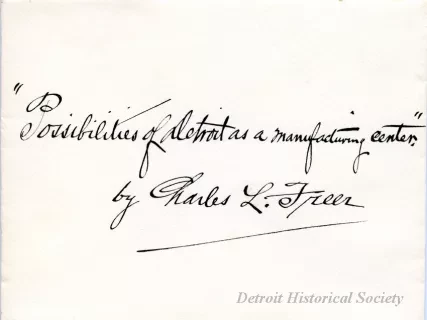 "Possibilities of Detroit as a manufacturing center."
by Charles L. Freer
Detroit Historical Society